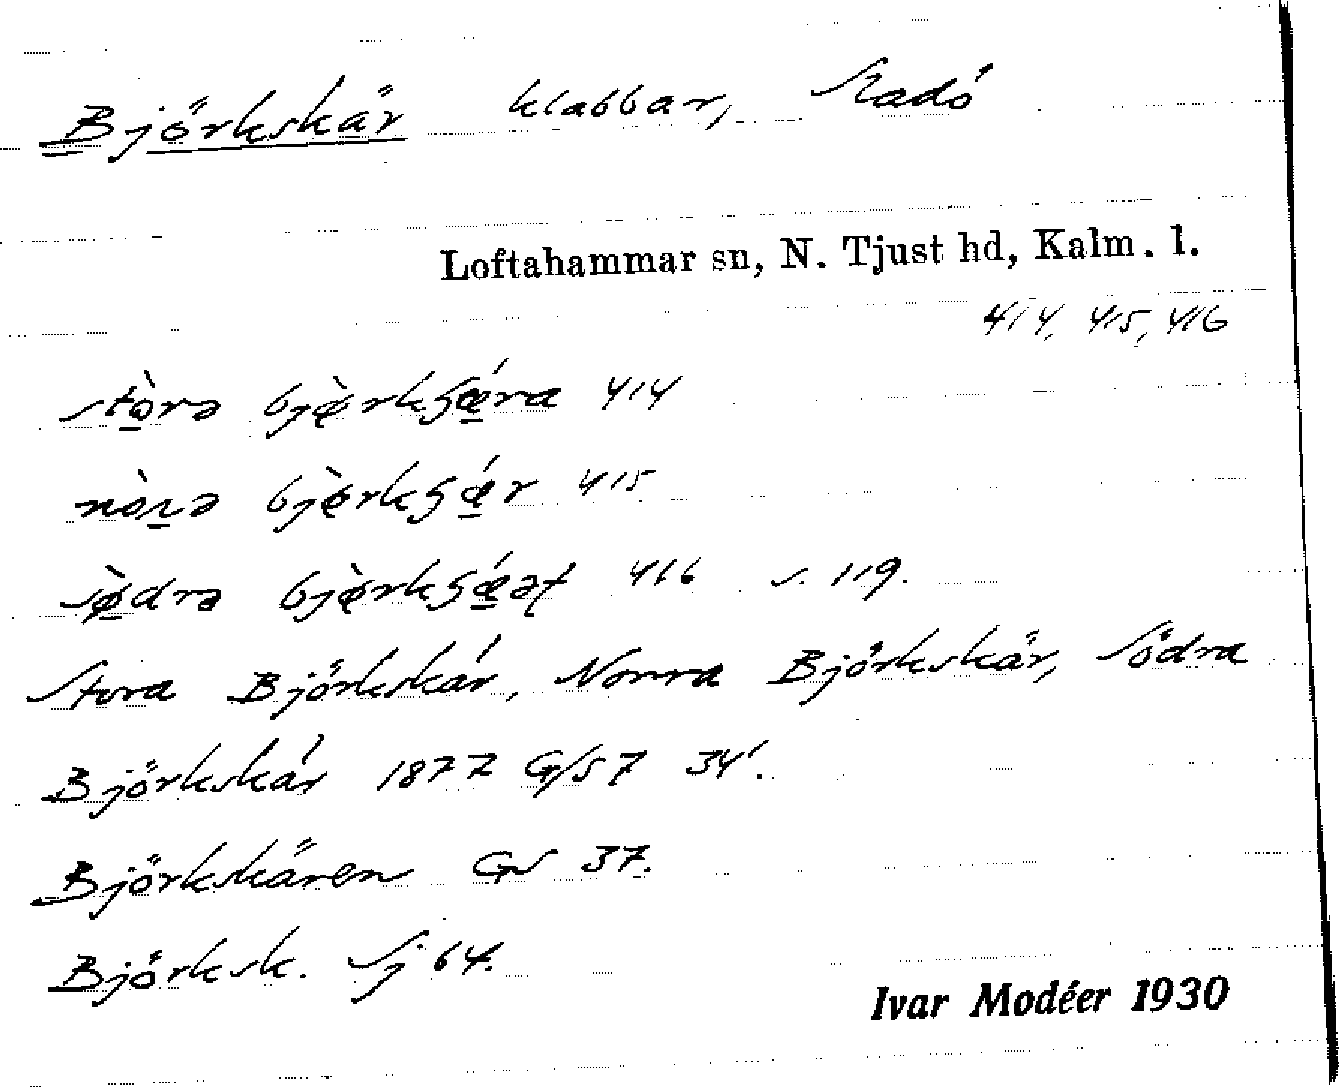 Björkskär klabbar, Kadö
Loftahammar sn, N. Tjust hd, Kalm. l.
414, 415, 416
stò̱rə bjø̀rkʂǽ̱ra 414
nòṟə bjø̀rkʂǽ̱r 415
sø̱̀drə bjø̀rkʂǽ̱ət 416 s. 119.
Stora Björkskär, Norra Björkskär, Södra
Björkskär 1877 G/S 7 34'.
Björkskären GS 37.
Björksk. Sj 64.
Ivar Modéer 1930